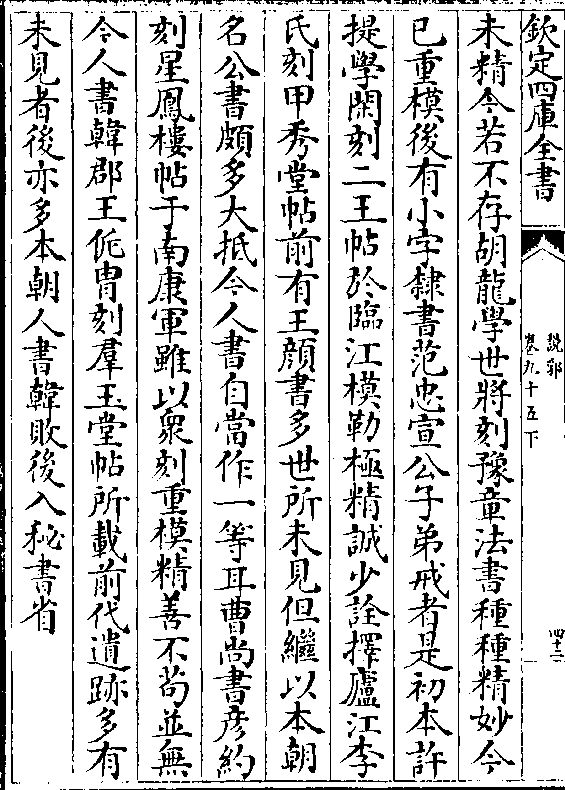 欽定四庫全書
說郛
卷九十五下
四十二
未精今若不存胡龍學世將刻豫章法書種種精妙今
已重模後有小字隸書范忠宣公子弟戒者是初本許
提學閑刻二王帖於臨江模勒極精誠少詮擇廬江李
氏刻甲秀堂帖前有王顔書多世所未見但繼以本朝
名公書頗多大抵今人書自當作一等耳曹尚書彦約
刻星鳳樓帖于南康軍雖以衆刻重模精善不苟並無
今人書韓郡王侂胄刻羣玉堂帖所載前代遺跡多有
未見者後亦多本朝人書韓敗後入秘書省